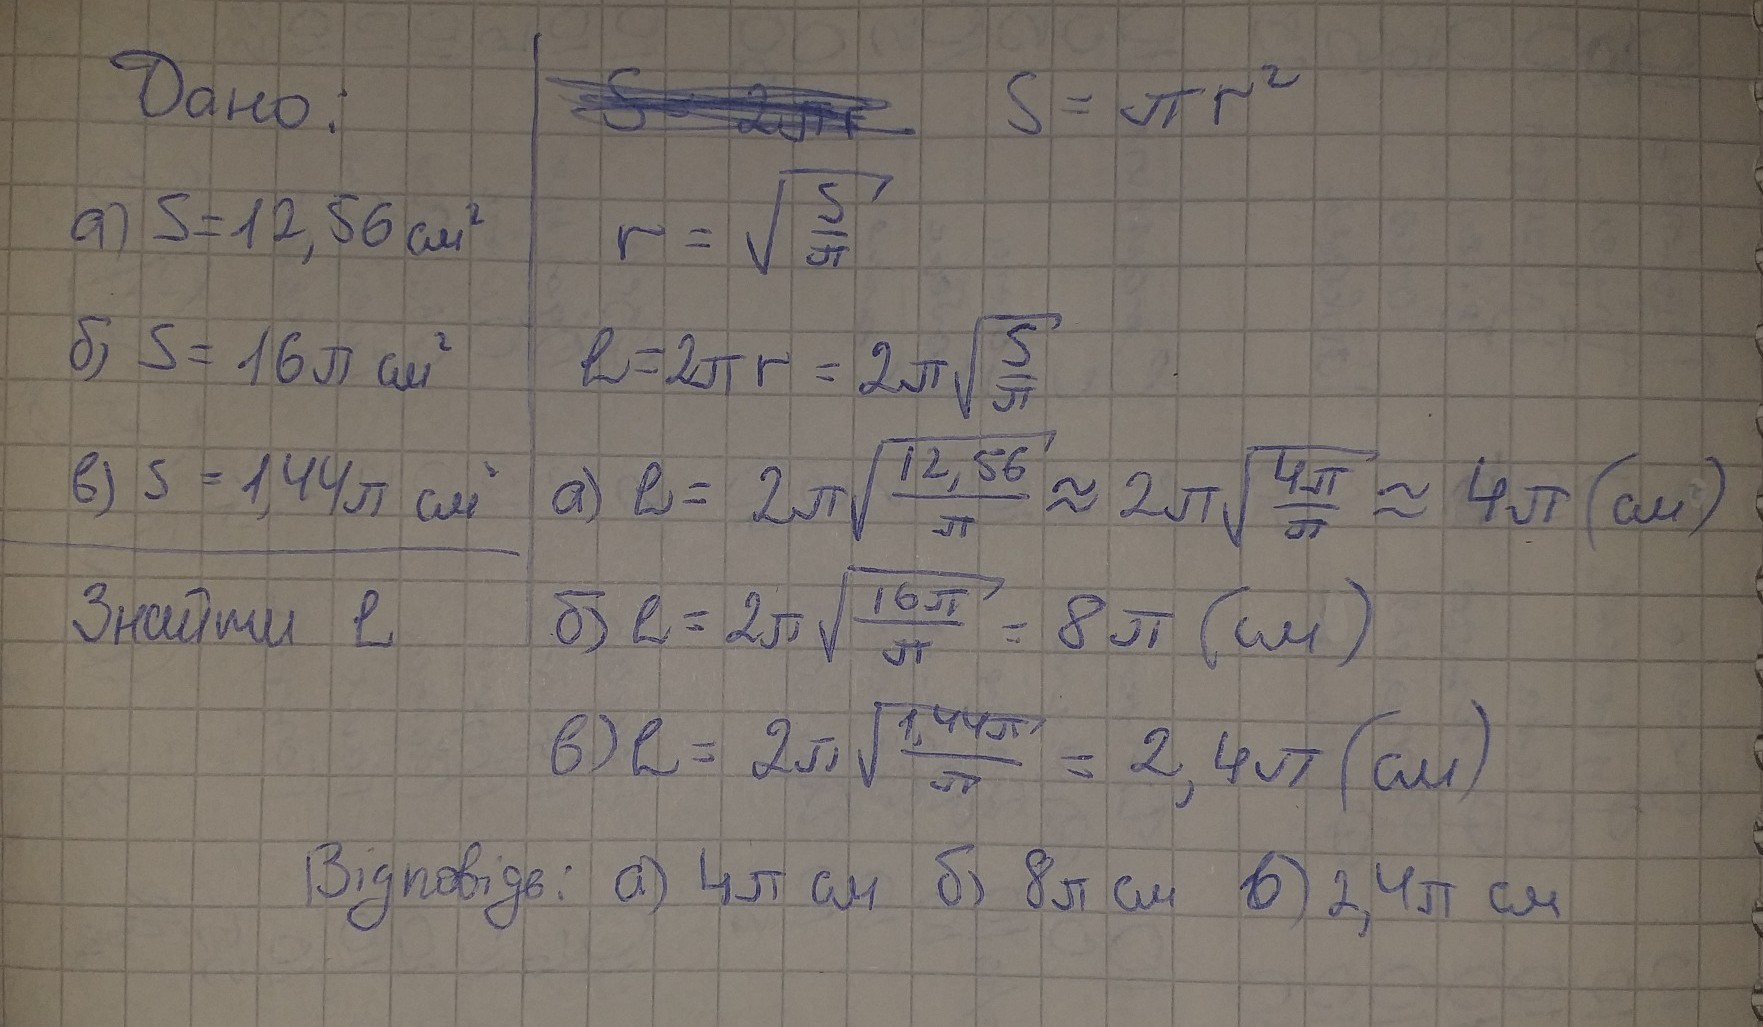 Дано:
а) S=12,56 см²
б) S= 16π см²
в) S =1,44π см²
Знайти L
S = πr²
r = √(S/π)
L=2πr = 2π√(S/π)
а) L= 2π√(12,56/π) ≈ 2π√(4π/π) ≈ 4π (см)
б) L= 2π√(16π/π) = 8π (см)
в) L= 2π√(1,44π/π) = 2,4π (см)
Відповідь: а) 4π см б) 8π см в) 2,4π см